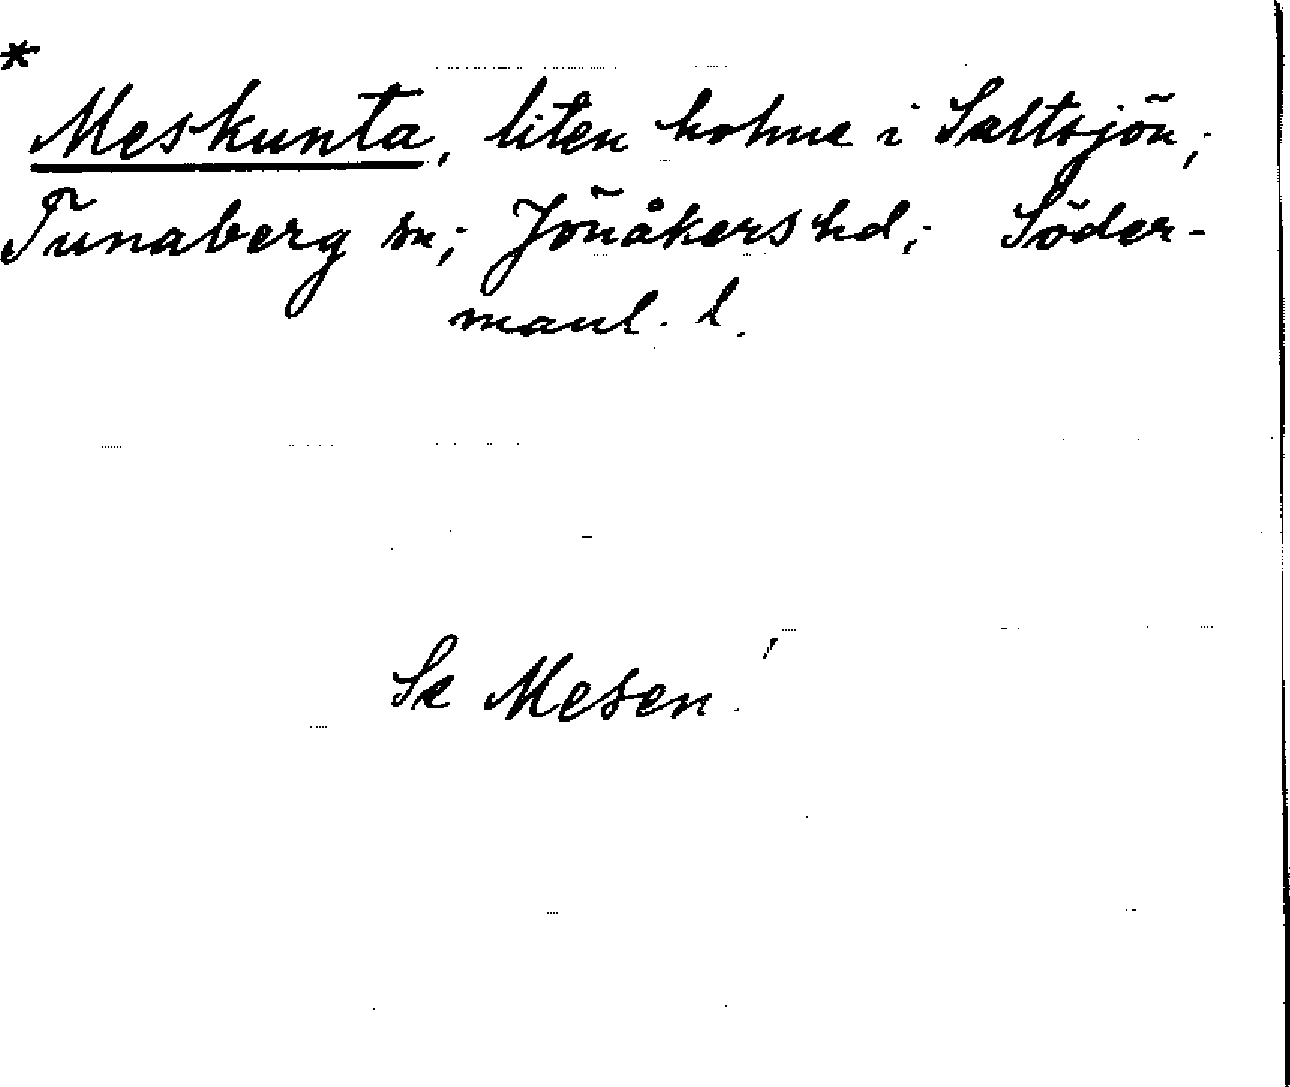 *
Meskunta, liten holme i Saltsjön;
Tunaberg sn; Jönåkers hd; Söder-
manl. l.
Se Mesen!